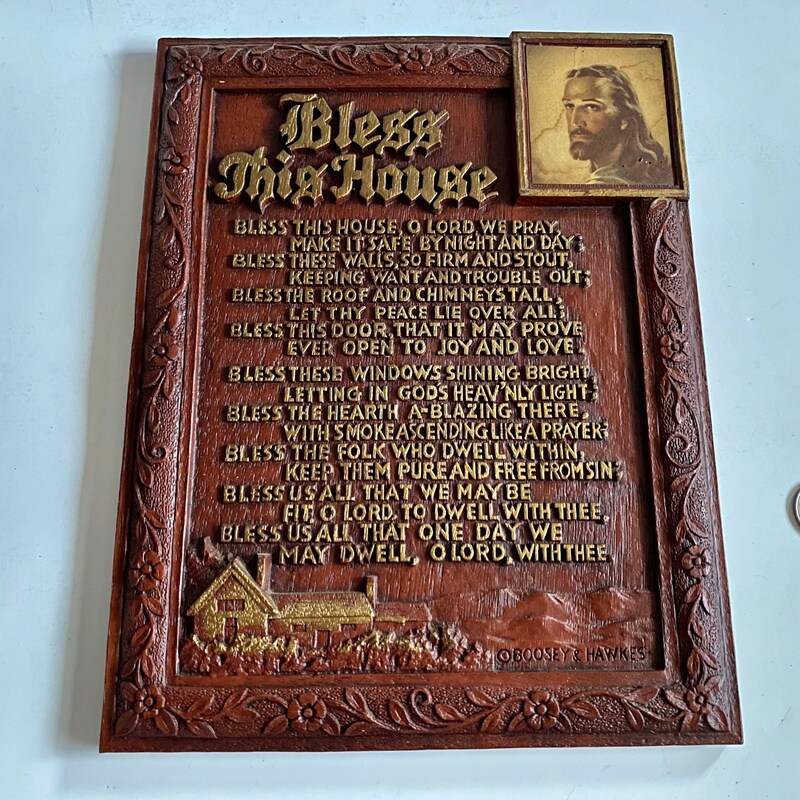 Bless
This House
BLESS THIS HOUSE, O LORD WE PRAY,
MAKE IT SAFE BY NIGHT AND DAY;
BLESS THESE WALLS, SO FIRM AND STOUT,
KEEPING WANT AND TROUBLE OUT;
BLESS THE ROOF AND CHIMNEYS TALL,
LET THY PEACE LIE OVER ALL;
BLESS THIS DOOR, THAT IT MAY PROVE
EVER OPEN TO JOY AND LOVE.
BLESS THESE WINDOWS SHINING BRIGHT,
LETTING IN GOD'S HEAV'NLY LIGHT;
BLESS THE HEARTH A-BLAZING THERE,
WITH SMOKE ASCENDING LIKE A PRAYER;
BLESS THE FOLK WHO DWELL WITHIN,
KEEP THEM PURE AND FREE FROM SIN;
BLESS US ALL THAT WE MAY BE
FIT, O LORD, TO DWELL WITH THEE,
BLESS US ALL THAT ONE DAY WE
MAY DWELL, O LORD, WITH THEE.
© BOOSEY & HAWKES